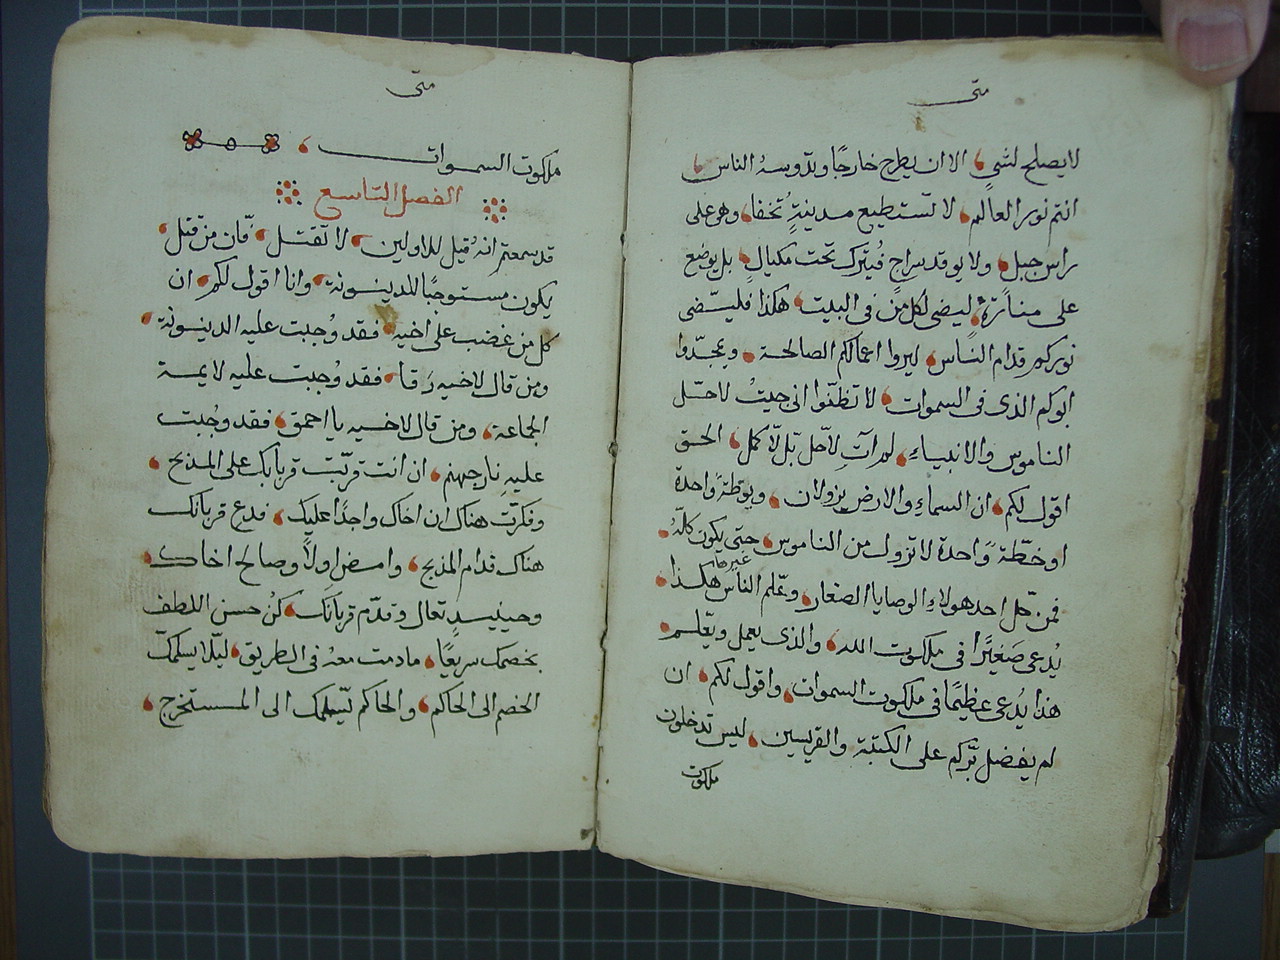 متى
لا يصلح لشي الا ان يطرح خارجًا وتدوسهُ الناس
انتم نور العالم لا تستطيع مدينةٍ تُخفا وهى على
راس جبل ولا يوقد سراج فُيترك تحت مكيال بل يوضع
على منارَة ليضى لكل منَ فى البيت هكذا فليسّضى
نوركم قدام النَاس ليروا اعمالكم الصالحة ويمجّدوا
ابوكم الذى فى السموات لا تظنّوا انى جيتُ لاحّل
الناموس والانبياءِ لم اتِ لاّحل بَل لاّ كمل الحق
اقول لكم ان السماءِ والارض يزولان ويوطةً واحدة
او خطّةً واحدة لا تزول من الناموس حتى يكون كلّهُ
فمن حّل احد هولاءِ الوصايا الصغار وعّلم الناس هكذا
غيرها
يُدعى صَغيًرا فى ملكوت الله والذى يعمل ويعّلم
هذا يُدعى عظيمًا فى ملكوت السموات واقول لكم ان
لم يفضل بّركم على الكتبة والفريسين ليس تدخلون
ملكوت
متى
ملكوت السموات
الفصل التاسع
قد سمعتم انهُ قيل للاولين لا تقتل فّان من قّتل
يكون مستوجبًا للدينونة وانا اقول لكم ان
كل من غضب على اخيه فقد وُجبت عليه الدينونة
ومن قال لاخيه رَقا فقد وُجبت عليه لايمة
الجماعة ومن قال لاخيه يا احمق فقد وجُبت
عليهِ نار جهنم ان انت قرّبت قربانك على المذبح
وفكرّت هناك ان اخاك واجدًا عليك فدع قربانك
هناك قدام المذبح وامضِ اولاً وصالح اخاك
وحينيدٍ تعال وقدّم قربانَك كُن حسن اللطف
بخصمك سريعًا ما دمت معهُ فى الطريق ليّلا يسلمّك
الخصم الى الحاكم والحاكم يّسلمك الى المستخرج